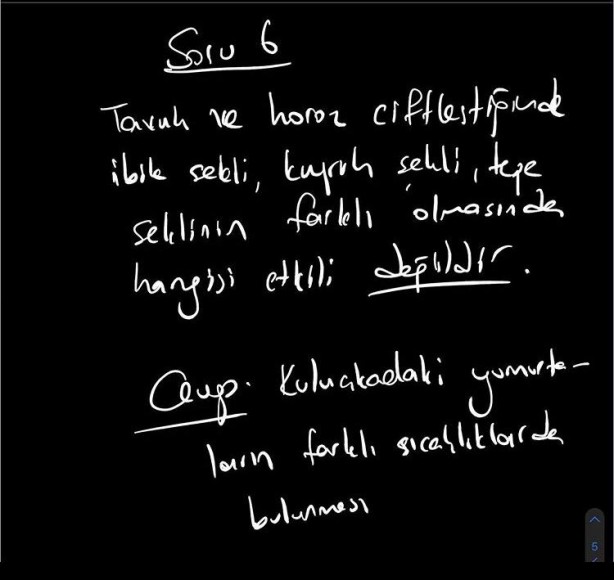 Soru 6
Tavuk ve horoz ciftleştiğinde
ibik sekli, kuyruk sekli, tepe
seklinin farklı olmasında
hangisi etkili değildir.
Cevap. Kuluckadaki yumurta-
ların farklı sıcaklıklarda
bulunması
5